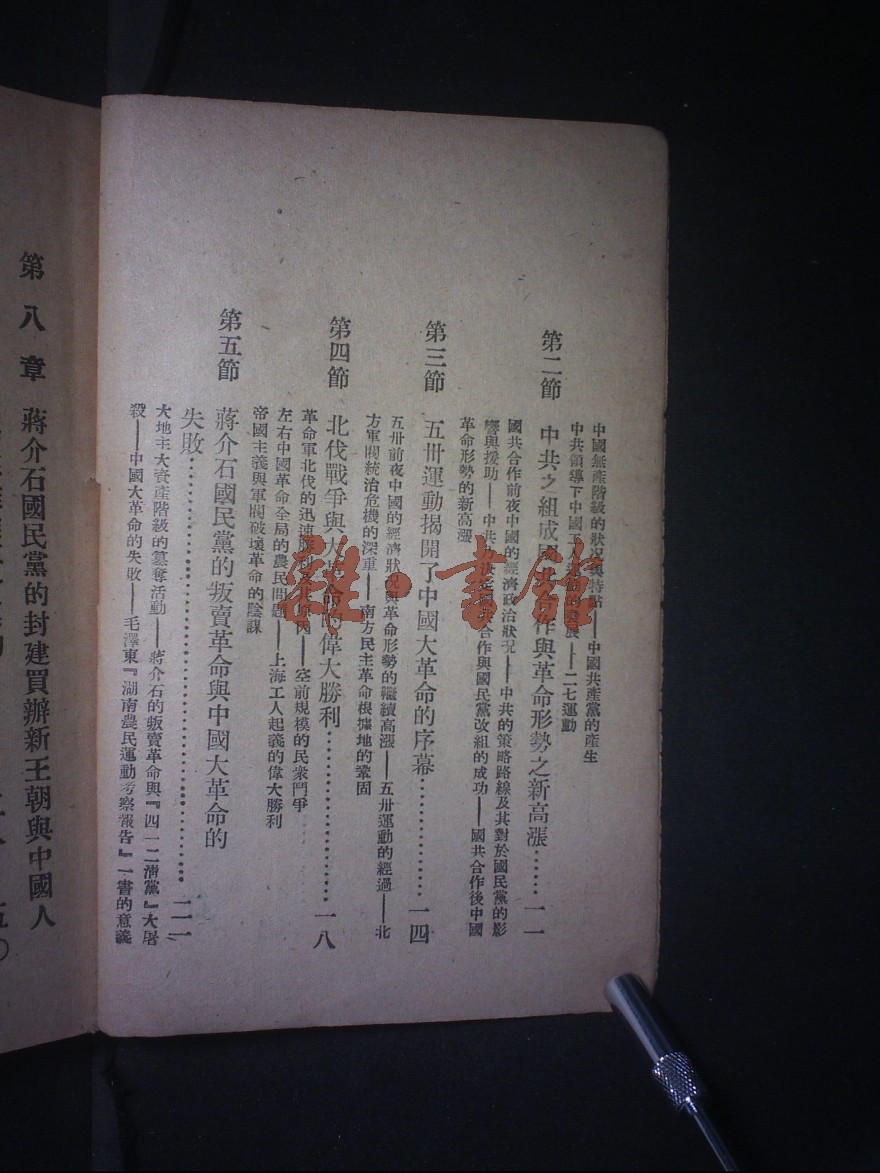 中國無產階級的狀況與特點——中國共產黨的產生
中共領導下中國工人運動的發展——二七運動
第二節 中共之組成國共合作與革命形勢之新高漲……一一
國共合作前夜中國的經濟政治狀况——中共的策略路線及其對於國民黨的影
響與援助——中共 國共合作與國民黨改組的成功——國共合作後中國
革命形勢的新高漲
第三節 五卅運動揭開了中國大革命的序幕……一四
五卅前夜中國的經濟狀況與革命形勢的繼續高漲——五卅運動的經過——北
方軍閥統治危機的深重——南方民主革命根據地的鞏固
第四節 北伐戰爭與大革命的偉大勝利……一八
革命軍北伐的迅速勝利及其原因——空前規模的民衆鬥爭
左右中國革命全局的農民問題——上海工人起義的偉大勝利
帝國主義與軍閥破壞革命的陰謀
第五節 蔣介石國民黨的叛賣革命與中國大革命的
失敗……二二
大地主大資產階級的篡奪活動——蔣介石的叛賣革命與『四一二清黨』大屠
殺——中國大革命的失敗——毛澤東『湖南農民運動考察報告』一書的意義
第八章 蔣介石國民黨的封建買辦新王朝與中國人
五〇
雜·書館